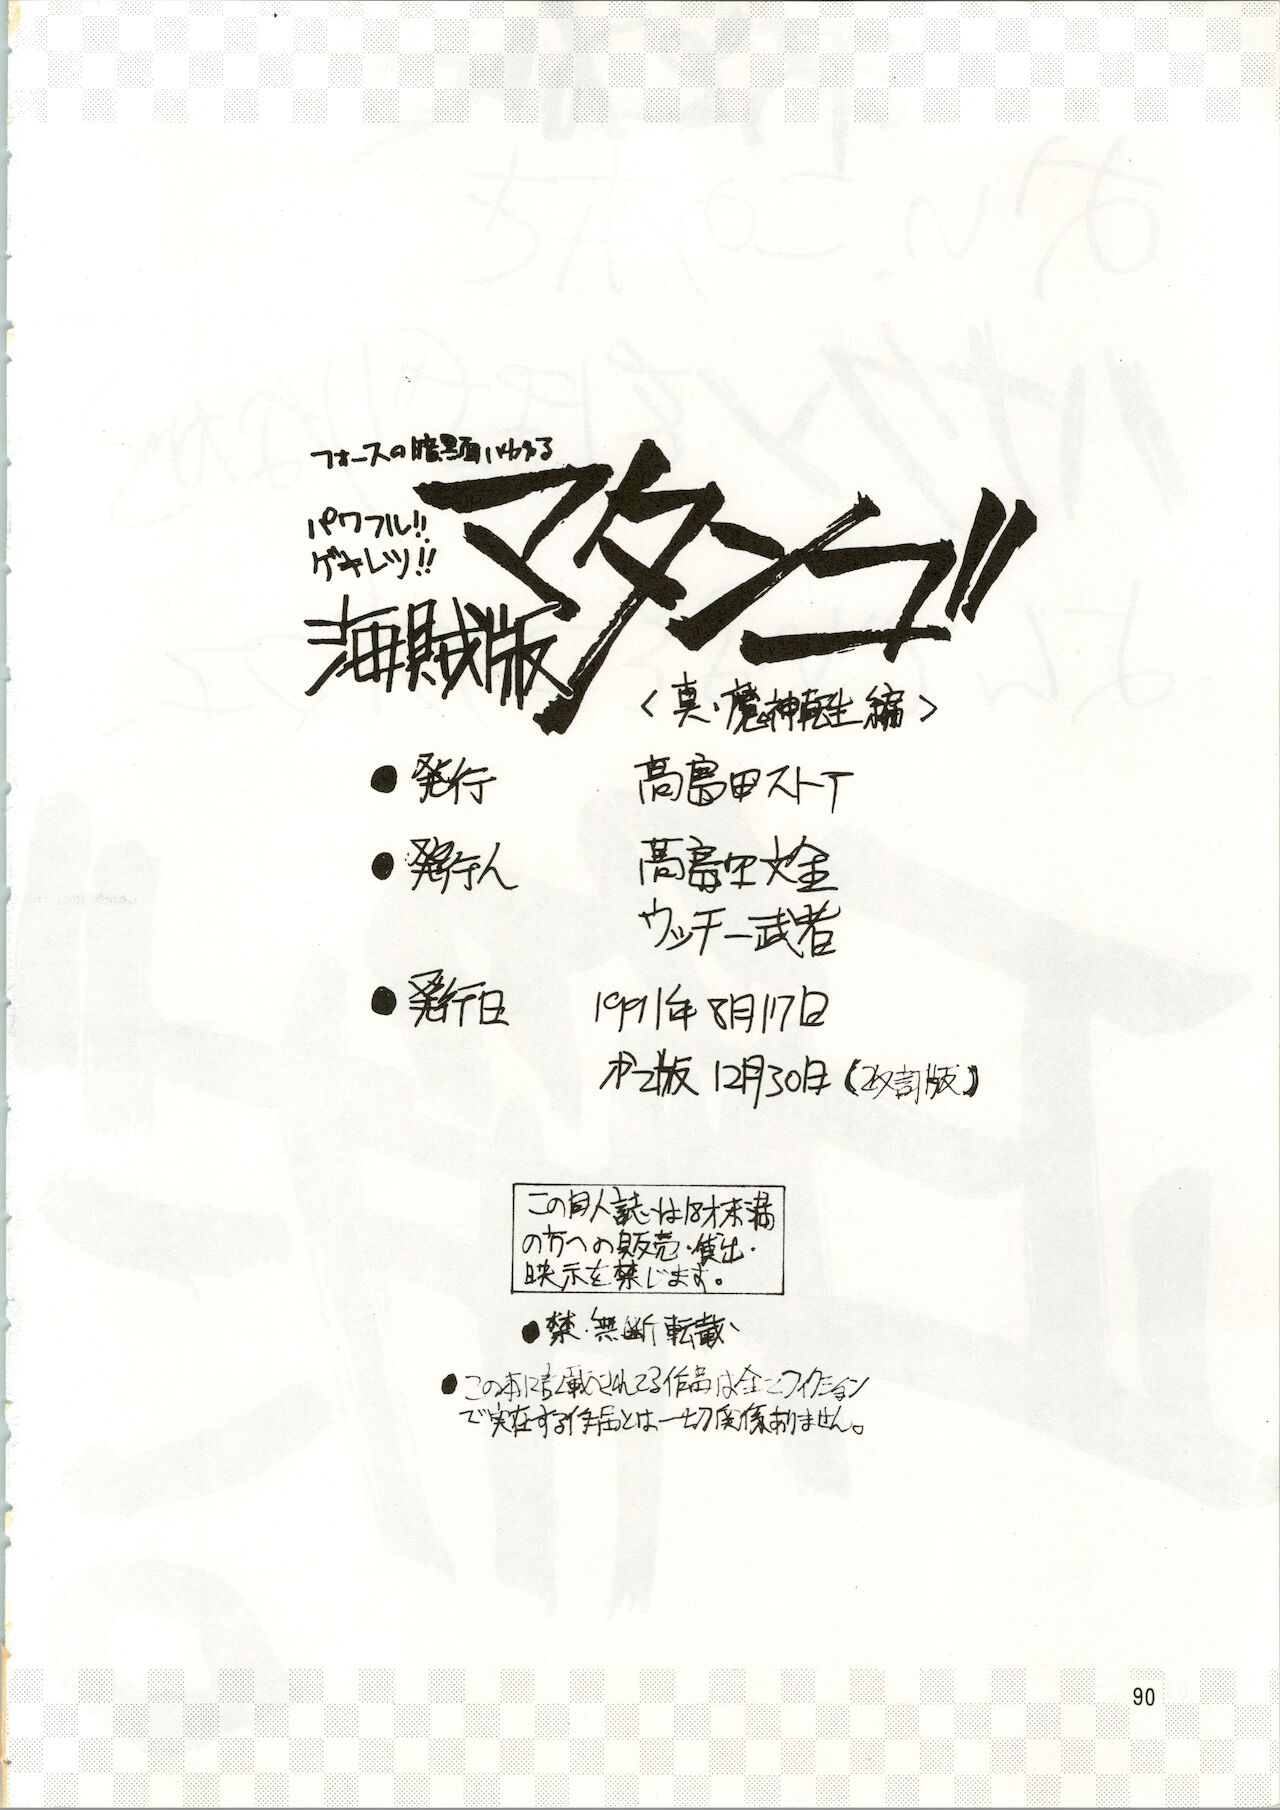 フォースの暗黒面いわゆる
パワフル!!
ゲキレツ!!
マタンゴ!!
海賊版
<真・魔神転生編>
●発行 高島田ストア
●発行人 高島田文金
ウッチー武者
●発行日 1991年8月17日
12月30日(改訂版)
この同人誌は18才未満
の方への販売・貸出・
映示を禁じます。
●禁・無断転載
●この本に記載されてる作品は全てフィクション
で実在する作品とは一切関係ありません。
90